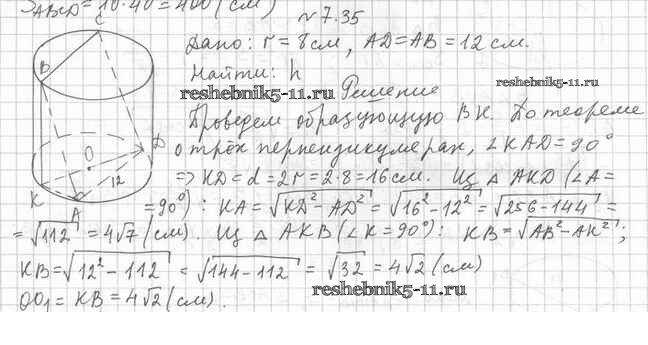 S_ABCD = 10·40 = 400 (см)
№7.35
Дано: r = 8см, AD=AB=12см.
Найти: h
reshebnik5-11.ru
reshebnik5-11.ru
Решение
Проведем образующую BK. По теореме
о трёх перпендикулярах, ∠KAD=90°
⇒ KD=d=2r=2·8=16см. Из △AKD (∠A=
=90°): KA=√(KD²-AD²)=√(16²-12²)=√(256-144)=
=√112=4√7 (см). Из △AKB (∠K=90°): KB=√(AB²-AK²);
KB=√(12²-112)=√(144-112)=√32=4√2 (см)
OO₁=KB=4√2 (см).
reshebnik5-11.ru
C
B
O
D
12
K
A